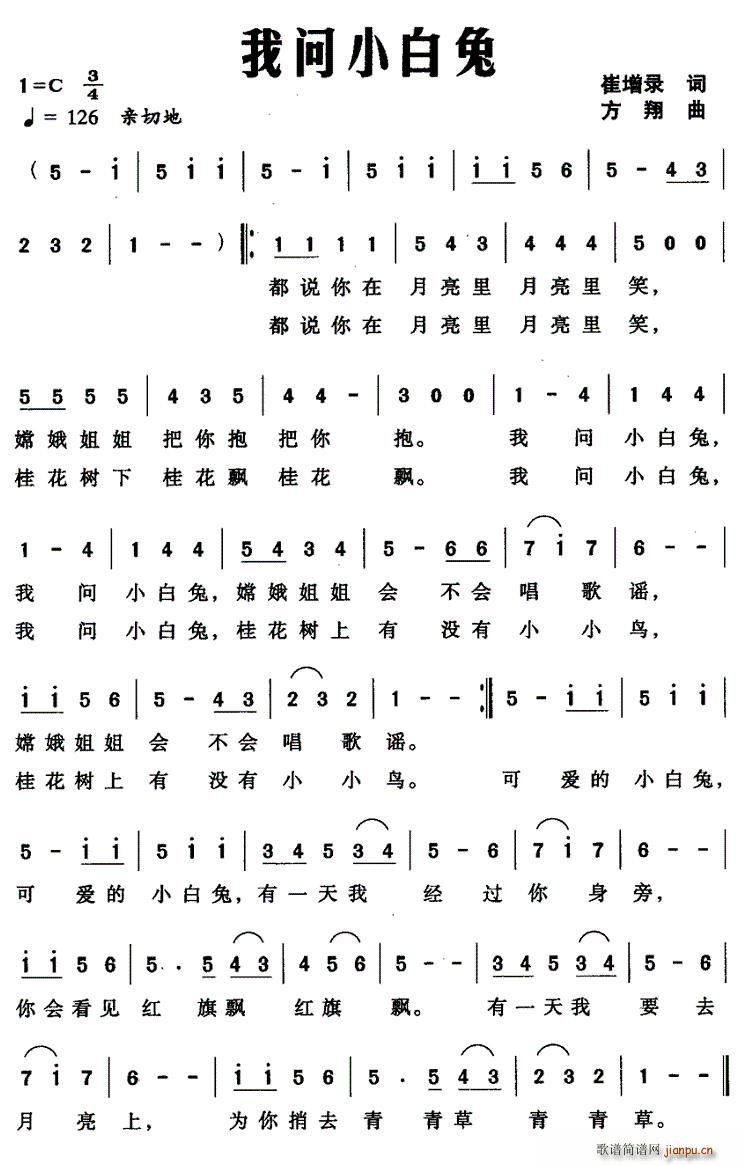 我问小白兔
1=C 3/4 崔增录 词
♩= 126 亲切地 方 翔 曲
( 5 - i | 5 i i | 5 - i | 5 i i | i i 5 6 | 5 - 4 3 |
2 3 2 | 1 - - ) ‖: 1 1 1 1 | 5 4 3 | 4 4 4 | 5 0 0 |
都 说 你 在 月 亮 里 月 亮 里 笑，
都 说 你 在 月 亮 里 月 亮 里 笑，
5 5 5 5 | 4 3 5 | 4 4 - | 3 0 0 | 1 - 4 | 1 4 4 |
嫦 娥 姐 姐 把 你 抱 把 你 抱。 我 问 小 白 兔，
桂 花 树 下 桂 花 飘 桂 花 飘。 我 问 小 白 兔，
1 - 4 | 1 4 4 | 5 4 3 4 | 5 - 6 6 | 7 i 7 | 6 - - |
我 问 小 白 兔，嫦 娥 姐 姐 会 不 会 唱 歌 谣，
我 问 小 白 兔，桂 花 树 上 有 没 有 小 小 鸟，
i i 5 6 | 5 - 4 3 | 2 3 2 | 1 - - :‖ 5 - i i | 5 i i |
嫦 娥 姐 姐 会 不 会 唱 歌 谣。
桂 花 树 上 有 没 有 小 小 鸟。 可 爱 的 小 白 兔，
5 - i i | 5 i i | 3 4 5 3 4 | 5 - 6 | 7 i 7 | 6 - - |
可 爱 的 小 白 兔，有 一 天 我 经 过 你 身 旁，
i i 5 6 | 5 . 5 4 3 | 4 5 6 | 5 - - | 3 4 5 3 4 | 5 - 6 |
你 会 看 见 红 旗 飘 红 旗 飘。 有 一 天 我 要 去
7 i 7 | 6 - - | i i 5 6 | 5 . 5 4 3 | 2 3 2 | 1 - - ‖
月 亮 上， 为 你 捎 去 青 青 草 青 青 草。
歌谱简谱网
jianpu.cn